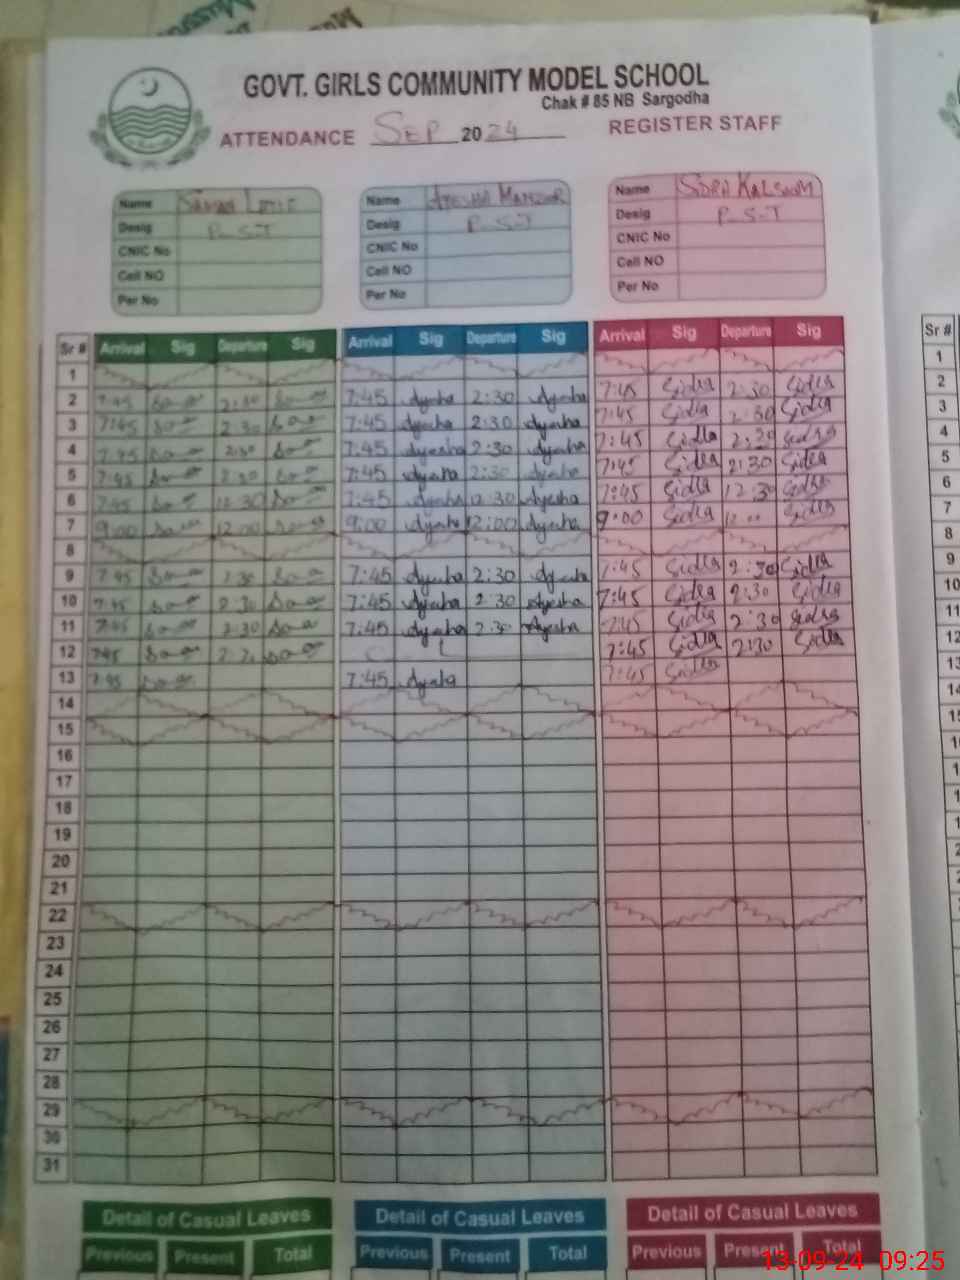 GOVT. GIRLS COMMUNITY MODEL SCHOOL
Chak # 85 NB Sargodha
ATTENDANCE SEP 2024 REGISTER STAFF
Name Name AYESHA MANZOOR Name SIDRA KALSOOM
Desig P_S_T Desig P_S_T Desig P_S_T
CNIC No CNIC No CNIC No
Cell NO Cell NO Cell NO
Per No Per No Per No
Sr # Arrival Sig Departure Sig Arrival Sig Departure Sig Arrival Sig Departure Sig Sr #
1 1
2 7:45 2:30 7:45 Ayesha 2:30 Ayesha 7:45 Sidra 2:30 Sidra 2
3 7:45 2:30 7:45 Ayesha 2:30 Ayesha 7:45 Sidra 2:30 Sidra 3
4 7:45 2:30 7:45 Ayesha 2:30 Ayesha 7:45 Sidra 2:30 Sidra 4
5 7:45 2:30 7:45 Ayesha 2:30 Ayesha 7:45 Sidra 2:30 Sidra 5
6 7:45 12:30 7:45 Ayesha 12:30 Ayesha 7:45 Sidra 12:30 Sidra 6
7 9:00 12:00 9:00 Ayesha 12:00 Ayesha 9:00 Sidra 12:00 Sidra 7
8 8
9 7:45 2:30 7:45 Ayesha 2:30 Ayesha 7:45 Sidra 2:30 Sidra 9
10 7:45 2:30 7:45 Ayesha 2:30 Ayesha 7:45 Sidra 2:30 Sidra 10
11 7:45 2:30 7:45 Ayesha 2:30 Ayesha 7:45 Sidra 2:30 Sidra 11
12 7:45 C L 7:45 Sidra 2:30 Sidra 12
13 7:45 7:45 Ayesha 7:45 Sidra 13
14
15
16
17
18
19
20
21
22
23
24
25
26
27
28
29
30
31
Detail of Casual Leaves Detail of Casual Leaves Detail of Casual Leaves
Previous Present Total Previous Present Total Previous Present Total
13-09-24 09:25